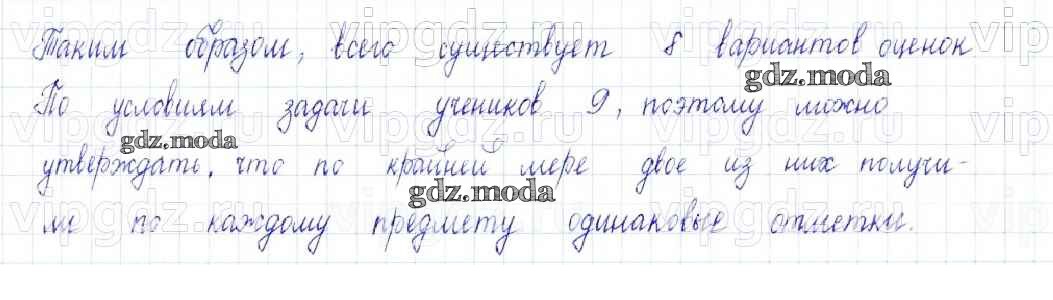 Таким образом, всего существует 8 вариантов оценок.
По условиям задачи учеников 9, поэтому можно
утверждать, что по крайней мере двое из них получи-
ли по каждому предмету одинаковые отметки.
gdz.moda
gdz.moda
gdz.moda